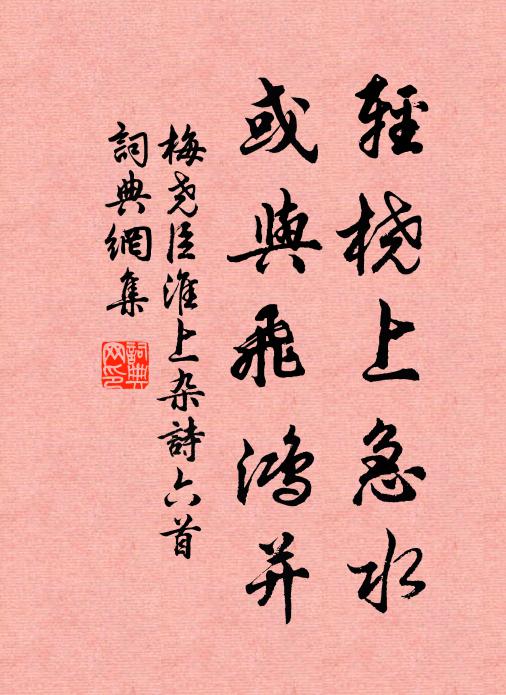 輕桡上急水
或與飛鴻并
梅尧臣淮上杂詩六首
詞典網集
詞典网印